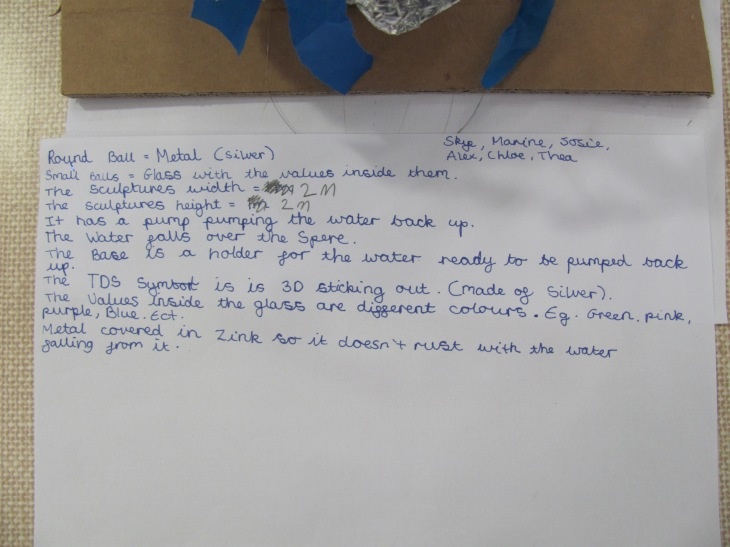 Skye, Manine, Josie,
Alex, Chloe, Thea
Round Ball = Metal (silver)
Small Balls = Glass with the values inside them.
The sculptures width = 2M
The sculptures height = 2M
It has a pump pumping the water back up.
The Water falls over the Spere.
The Base is a holder for the water ready to be pumped back
up.
The TDS Symbol is is 3D sticking out. (Made of Silver).
The Values inside the glass are different colours. Eg. Green, pink,
purple, Blue. Ect.
Metal covered in Zink so it doesn't rust with the water
falling from it.